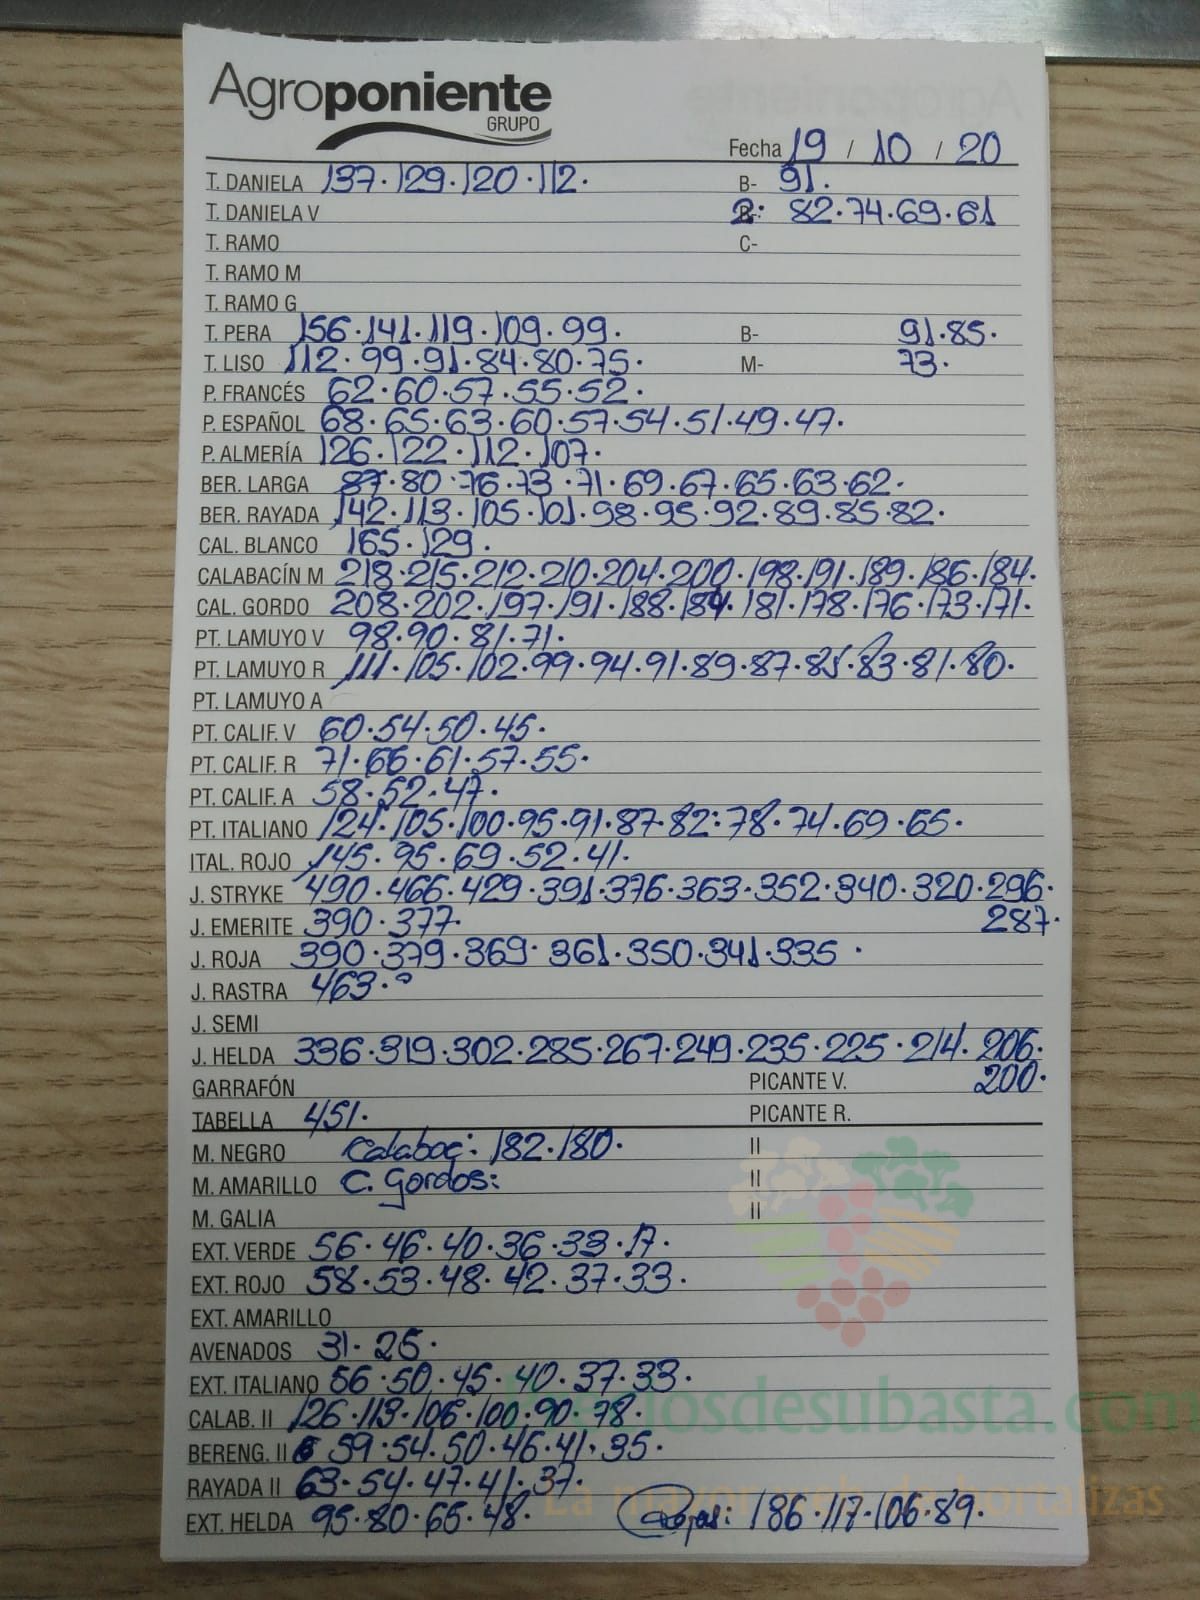 Agroponiente
GRUPO
Fecha 19 / 10 / 20
T. DANIELA 137·129·120·112· B- 91·
T. DANIELA V 2: 82·74·69·61
T. RAMO C-
T. RAMO M
T. RAMO G
T. PERA 156·141·119·109·99· B- 91·85·
T. LISO 112·99·91·84·80·75· M- 73·
P. FRANCÉS 62·60·57·55·52·
P. ESPAÑOL 68·65·63·60·57·54·51·49·47·
P. ALMERÍA 126·122·112·107·
BER. LARGA 87·80·76·73·71·69·67·65·63·62·
BER. RAYADA 142·113·105·101·98·95·92·89·85·82·
CAL. BLANCO 165·129·
CALABACÍN M 218·215·212·210·204·200·198·191·189·186·184·
CAL. GORDO 208·202·197·191·188·184·181·178·176·173·171·
PT. LAMUYO V 98·90·81·71·
PT. LAMUYO R 111·105·102·99·94·91·89·87·85·83·81·80·
PT. LAMUYO A
PT. CALIF. V 60·54·50·45·
PT. CALIF. R 71·66·61·57·55·
PT. CALIF. A 58·52·47·
PT. ITALIANO 124·105·100·95·91·87·82·78·74·69·65·
ITAL. ROJO 145·95·69·52·41·
J. STRYKE 490·466·429·391·376·363·352·340·320·296·
J. EMERITE 390·377· 287·
J. ROJA 390·379·369·361·350·341·335·
J. RASTRA 463·
J. SEMI
J. HELDA 336·319·302·285·267·249·235·225·214·206·
GARRAFÓN PICANTE V. 200·
TABELLA 451· PICANTE R.
M. NEGRO Calabac: 182·180· II
M. AMARILLO C. Gordos: II
M. GALIA II
EXT. VERDE 56·46·40·36·33·17·
EXT. ROJO 58·53·48·42·37·33·
EXT. AMARILLO
AVENADOS 31·25·
EXT. ITALIANO 56·50·45·40·37·33·
Preciosdesubasta.com
CALAB. II 126·113·106·100·90·78·
BERENG. II 59·54·50·46·41·35·
RAYADA II 63·54·47·41·37·
La mayor web de hortalizas
EXT. HELDA 95·80·65·48· 186·117·106·89·